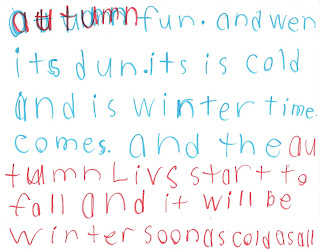 autumn fun. and wen
its dun. its is cold
and is winter time.
comes. and the au
tumn Livs start to
fall and it will be
winter soon as cold as all